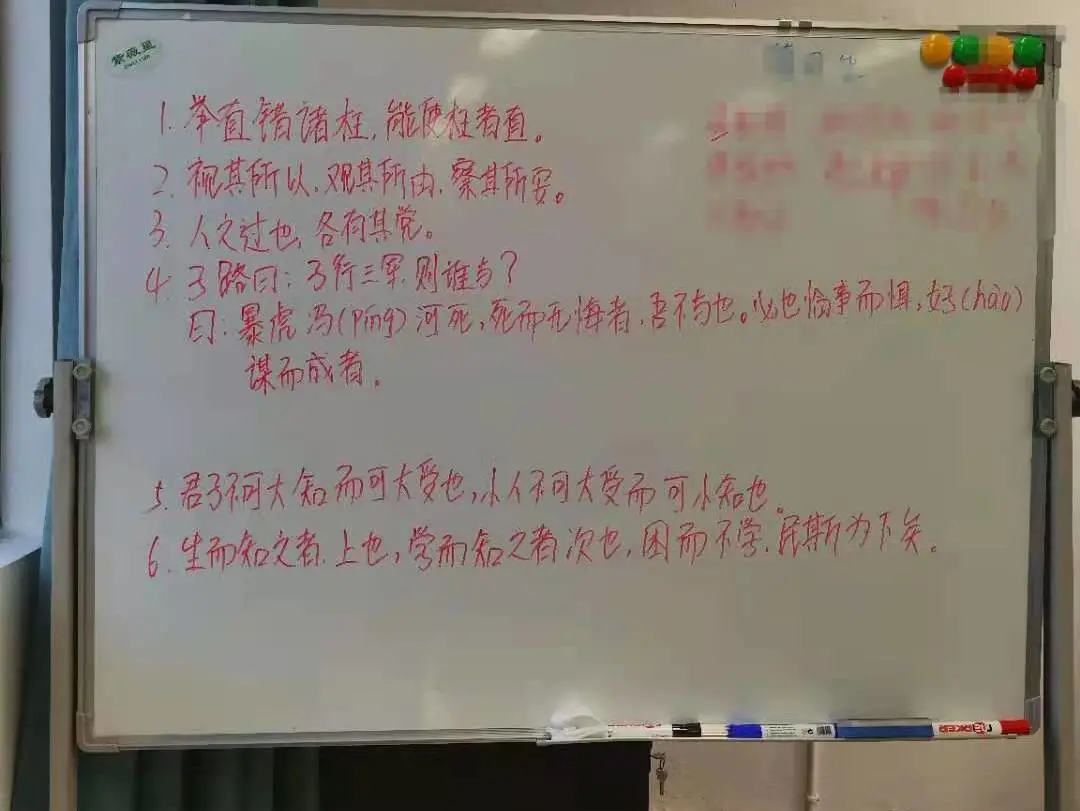 紫薇星
1. 举直错诸枉,能使枉者直。
2. 视其所以,观其所由,察其所安。
3. 人之过也,各有其党。
4. 子路曰:子行三军,则谁与?
曰:暴虎冯(píng)河死,死而无悔者,吾不与也。必也临事而惧,好(hào)
谋而成者。
5. 君子不可大知而可大受也,小人不可大受而可小知也。
6. 生而知之者,上也,学而知之者次也,困而不学,民斯为下矣。